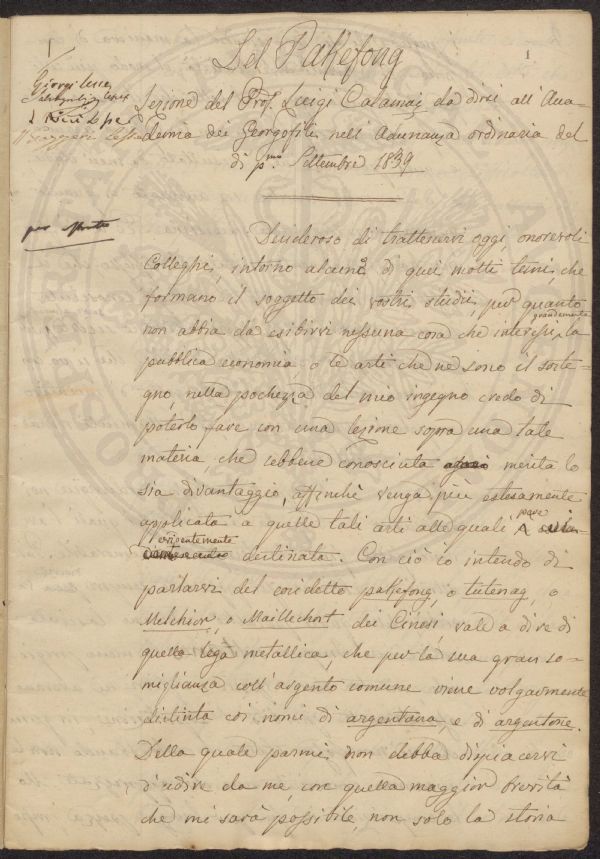 1
Del Pakefong
Lezione del Prof. Luigi Calamai da dirsi all' Acca-
demia dei Georgofili nell' Adunanza ordinaria del
dì p.mo Settembre 1839
Desideroso di trattenervi oggi, onorevoli
Colleghi, intorno alcuno di quei molti temi, che
formano il soggetto dei vostri studii, per quanto
non abbia da esibirvi nessuna cosa che interessi grandemente la
pubblica economia o le arti che ne sono il soste-
gno, nella pochezza del mio ingegno credo di
poterlo fare con una lezione sopra una tale
materia, che sebbene conosciuta merita lo
sia divantaggio, affinchè venga più estesamente
applicata a quelle tali arti alle quali pare
evidentemente destinata. Con ciò io intendo di
parlarvi del cosidetto pakefong, o tutenag, o
Melchior, o Maillechort dei Cinesi, vale a dire di
quella lega metallica, che per la sua gran so-
miglianza coll' argento comune viene volgarmente
distinta coi nomi di argentana, e di argentone.
Della quale parmi non debba dispiacervi
d' udire da me, con quella maggior brevità
che mi sarà possibile, non solo la storia